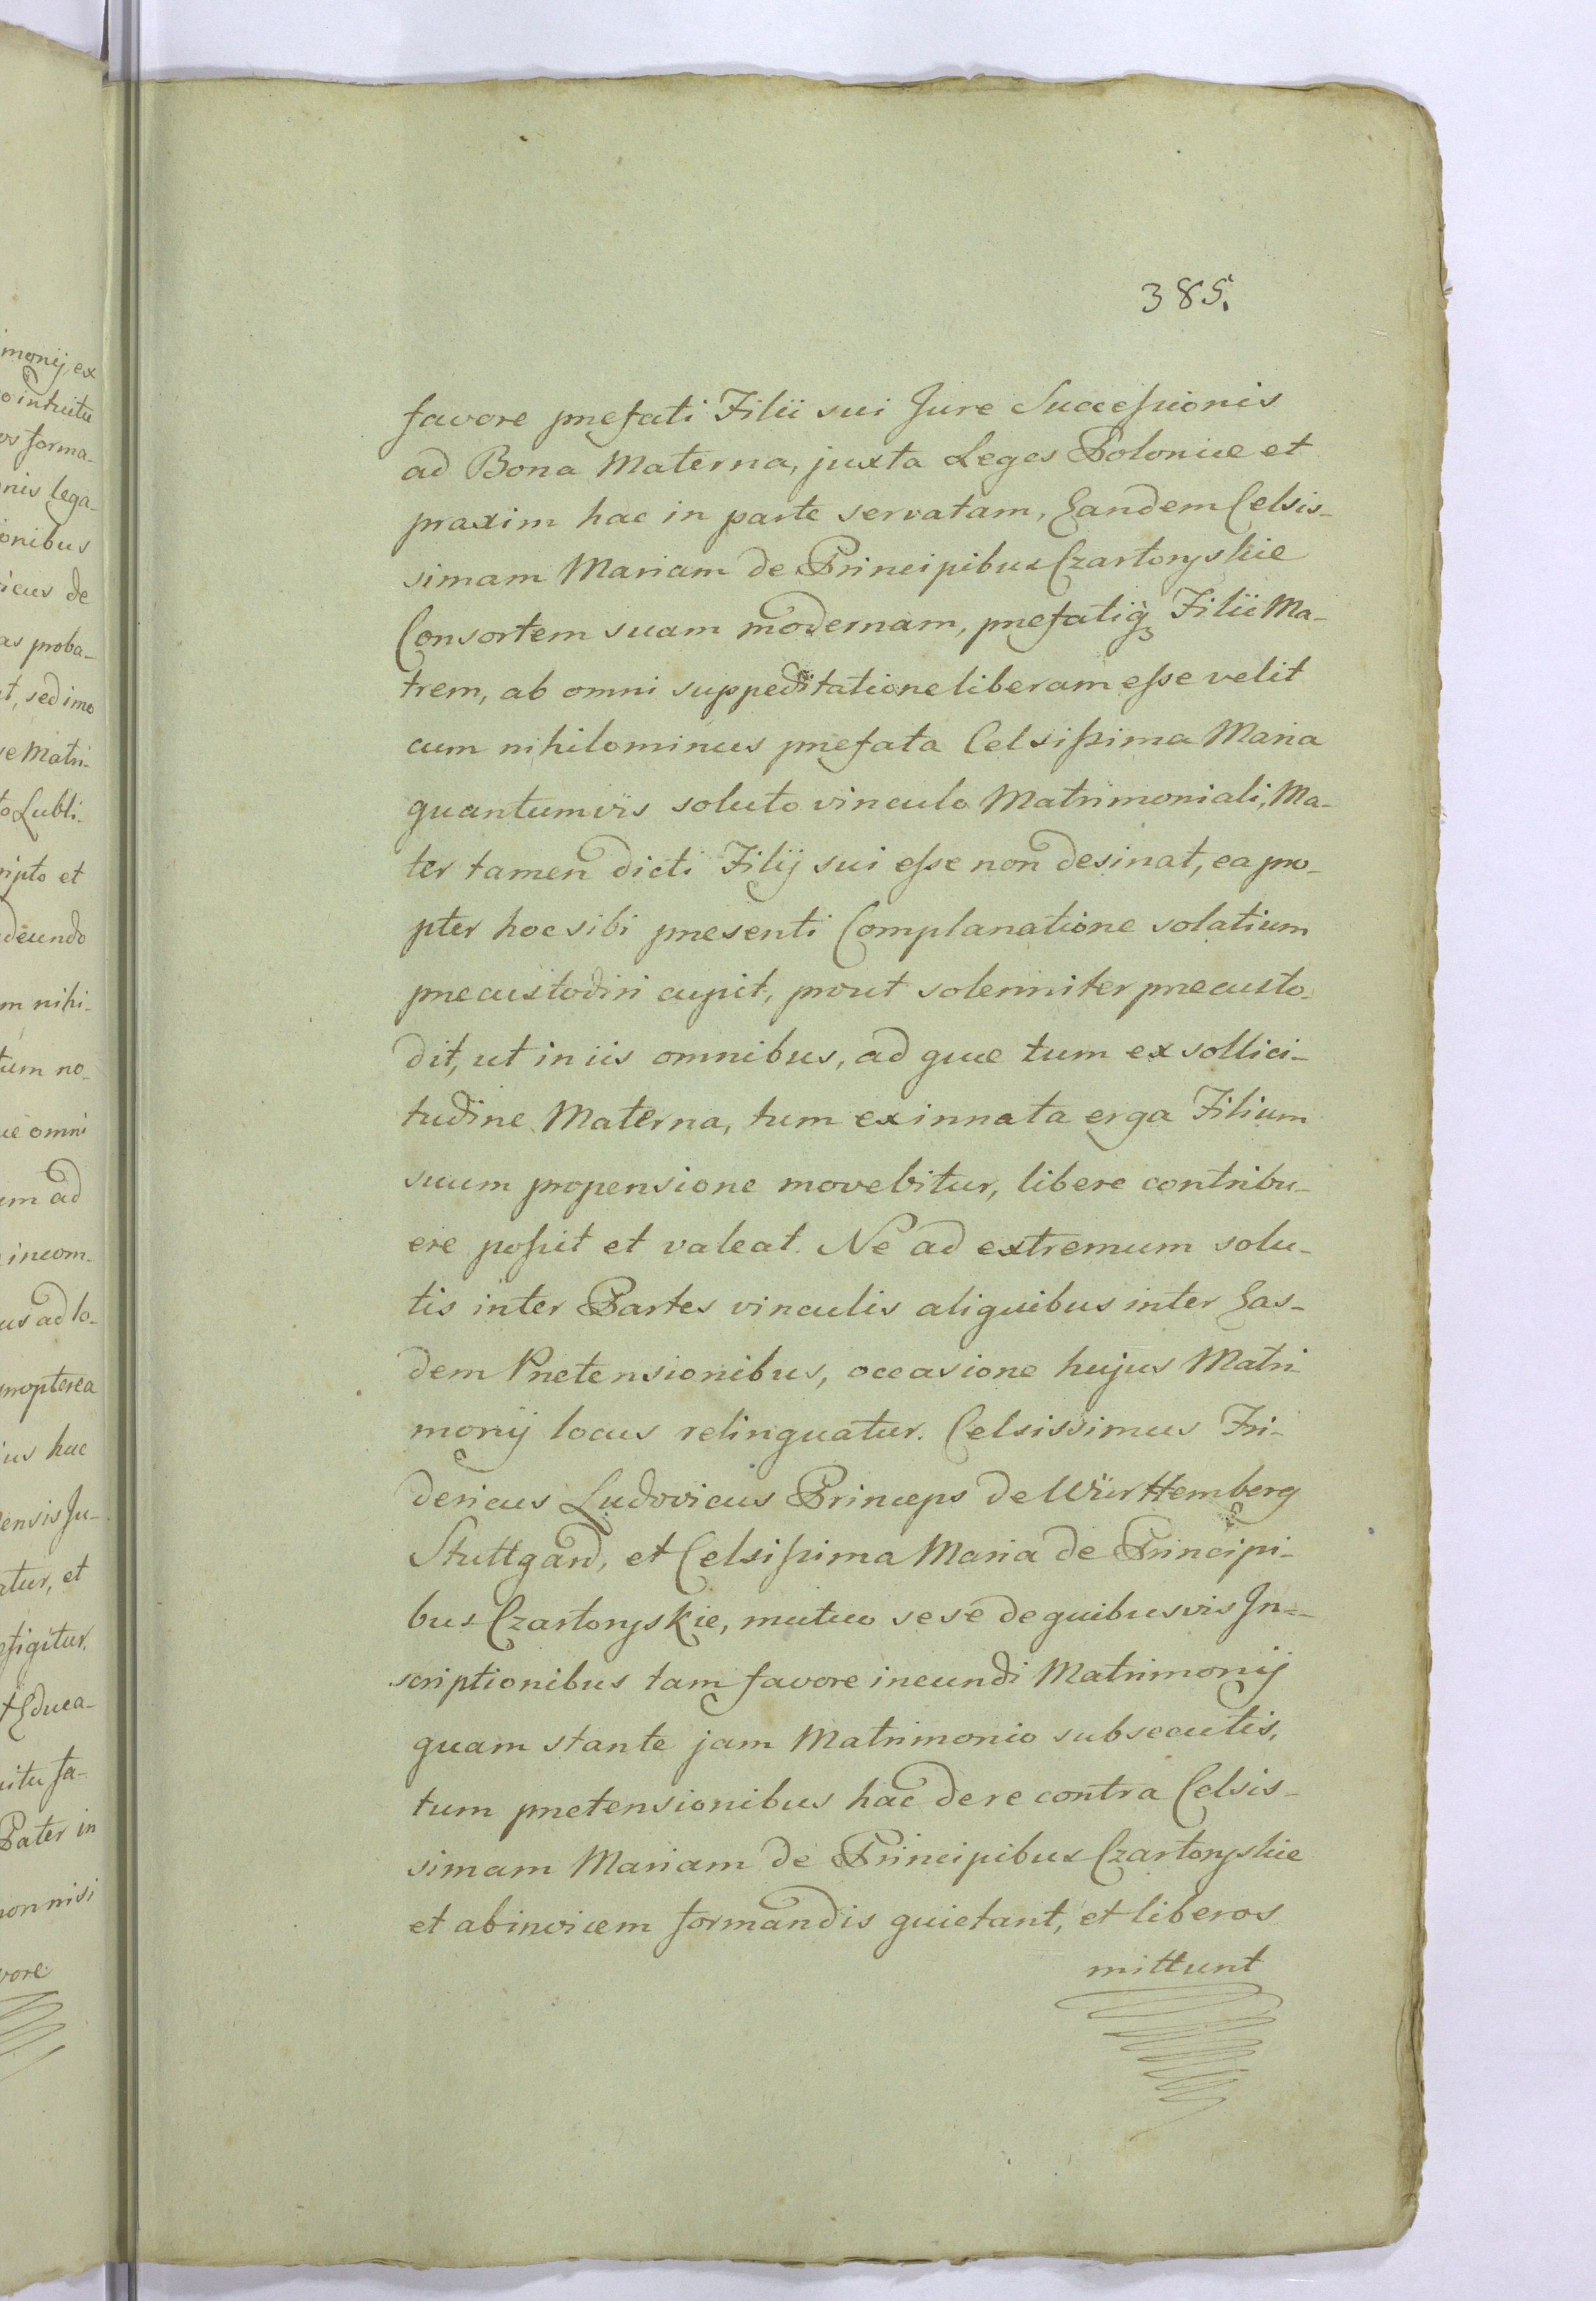 385.
favore præfati Filii sui Jure Successionis
ad Bona Materna, juxta Leges Poloniæ et
praxim hac in parte servatam, Eandem Celsis-
simam Mariam de Principibus Czartoryskie
Consortem suam modernam, præfatiq̃ Filii Ma-
trem, ab omni suppeditatione liberam esse velit
cum nihilominus præfata Celsissima Maria
quantumvis soluto vinculo Matrimoniali, Ma-
ter tamen dicti Filij sui esse non desinat, eapro-
pter hoc sibi præsenti Complanatione solatium
præcustodiri cupit, prout solenniter præcusto-
dit, ut in iis omnibus, ad quæ tum ex sollici-
tudine Materna, tum ex innata erga Filium
suum propensione movebitur, libere contribu-
ere possit et valeat. Ne ad extremum solu-
tis inter Partes vinculis aliquibus inter Eas-
dem Prætensionibus, occasione hujus Matri-
monij locus relinquatur. Celsissimus Fri-
dericus Ludovicus Princeps de Württemberg
Stuttgard, et Celsissima Maria de Principi-
bus Czartoryskie, mutuo sese de quibusvis In-
scriptionibus tam favore ineundi Matrimonij
quam stante jam Matrimonio subsecutis,
tum prætensionibus hac de re contra Celsis-
simam Mariam de Principibus Czartoryskie
et abinvicem formandis quietant, et liberos
mittunt
monij, ex
o intuitu
os forma-
nis lega-
onibus
icus de
as proba-
t, sed imo
ve Matri-
to Lubli-
ripto et
deundo
m nihi-
tum no-
æ omni
em ad
incom-
us ad lo-
propterea
ius hac
ensis Ju-
atur, et
efigitur.
t Educa-
uitu fa-
Pater in
non nisi
vore